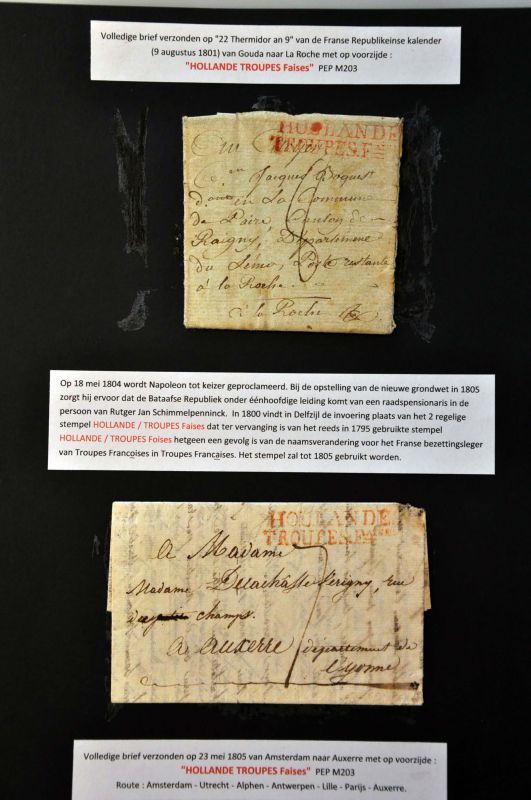 Volledige brief verzonden op "22 Thermidor an 9" van de Franse Republikeinse kalender
(9 augustus 1801) van Gouda naar La Roche met op voorzijde :
"HOLLANDE TROUPES Faises" PEP M203
HOLLANDE
TROUPES.F
Jacques
en La Commune
de Canton de
Département
du Poste restante
à la Roche.
à la Roche
Op 18 mei 1804 wordt Napoleon tot keizer geproclameerd. Bij de opstelling van de nieuwe grondwet in 1805
zorgt hij ervoor dat de Bataafse Republiek onder éénhoofdige leiding komt van een raadspensionaris in de
persoon van Rutger Jan Schimmelpenninck. In 1800 vindt in Delfzijl de invoering plaats van het 2 regelige
stempel HOLLANDE / TROUPES Faises dat ter vervanging is van het reeds in 1795 gebruikte stempel
HOLLANDE / TROUPES Foises hetgeen een gevolg is van de naamsverandering voor het Franse bezettingsleger
van Troupes Francoises in Troupes Francaises. Het stempel zal tot 1805 gebruikt worden.
HOLLANDE
TROUPES.F
A Madame
Madame rue
champs.
A auxerre département de
l'yonne
Volledige brief verzonden op 23 mei 1805 van Amsterdam naar Auxerre met op voorzijde :
"HOLLANDE TROUPES Faises" PEP M203
Route : Amsterdam - Utrecht - Alphen - Antwerpen - Lille - Parijs - Auxerre.